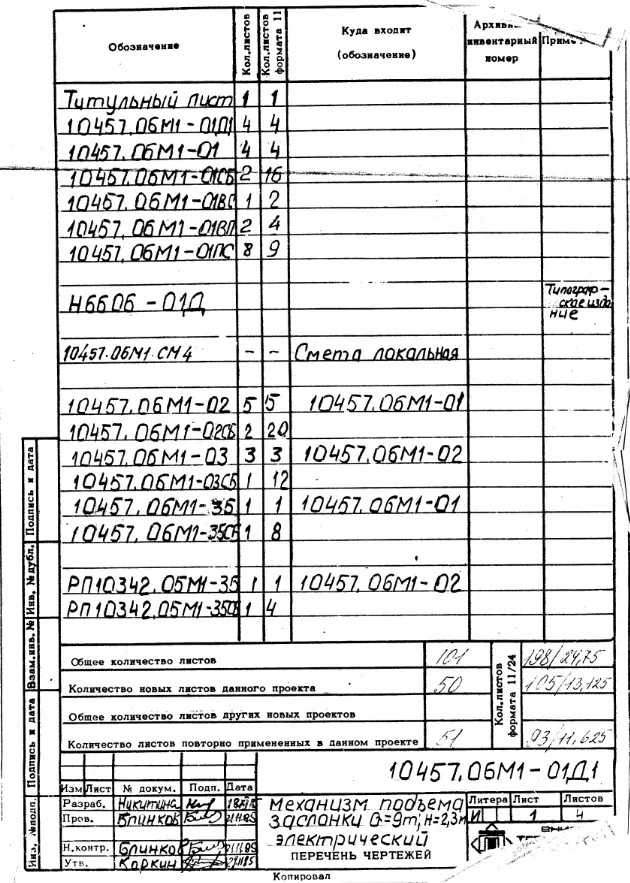 Обозначение Кол.листов Кол.листов формата 11 Куда входит (обозначение) инвентарный номер
Титульный лист 1 1
10457.06М1-01Д1 4 4
10457.06М1-01 4 4
10457.06М1-01СБ 2 16
10457.06М1-01ВС 1 2
10457.06М1-01ВП 2 4
10457.06М1-01ПС 8 9
Н6606-01Д Типограф-
ское изда
ние
10457.06М1.СМ4 - - Смета локальная
10457.06М1-02 5 5 10457.06М1-01
10457.06М1-02СБ 2 20
10457.06М1-03 3 3 10457.06М1-02
10457.06М1-03СБ 1 12
10457.06М1-35 1 1 10457.06М1-01
10457.06М1-35СБ 1 8
РП10342.05М1-35 1 1 10457.06М1-02
РП10342.05М1-35СБ 1 4
Общее количество листов 101 Кол.листов формата 11/24 198/24,75
Количество новых листов данного проекта 50 105/13,125
Общее количество листов других новых проектов
Количество листов повторно примененных в данном проекте 51 93/11,625
10457.06М1-01Д1
Изм Лист № докум. Подп. Дата
Разраб. Никитина
Пров. Блинков
Н.контр. Блинков
Утв. Коркин
Механизм подъема
заслонки Q=9т; Н=2,3м
электрический
ПЕРЕЧЕНЬ ЧЕРТЕЖЕЙ
Литера Лист Листов
И 1 4
Копировал
Подпись и дата
Инв. № дубл.
Взам.инв. №
Подпись и дата
Инв. №подл.